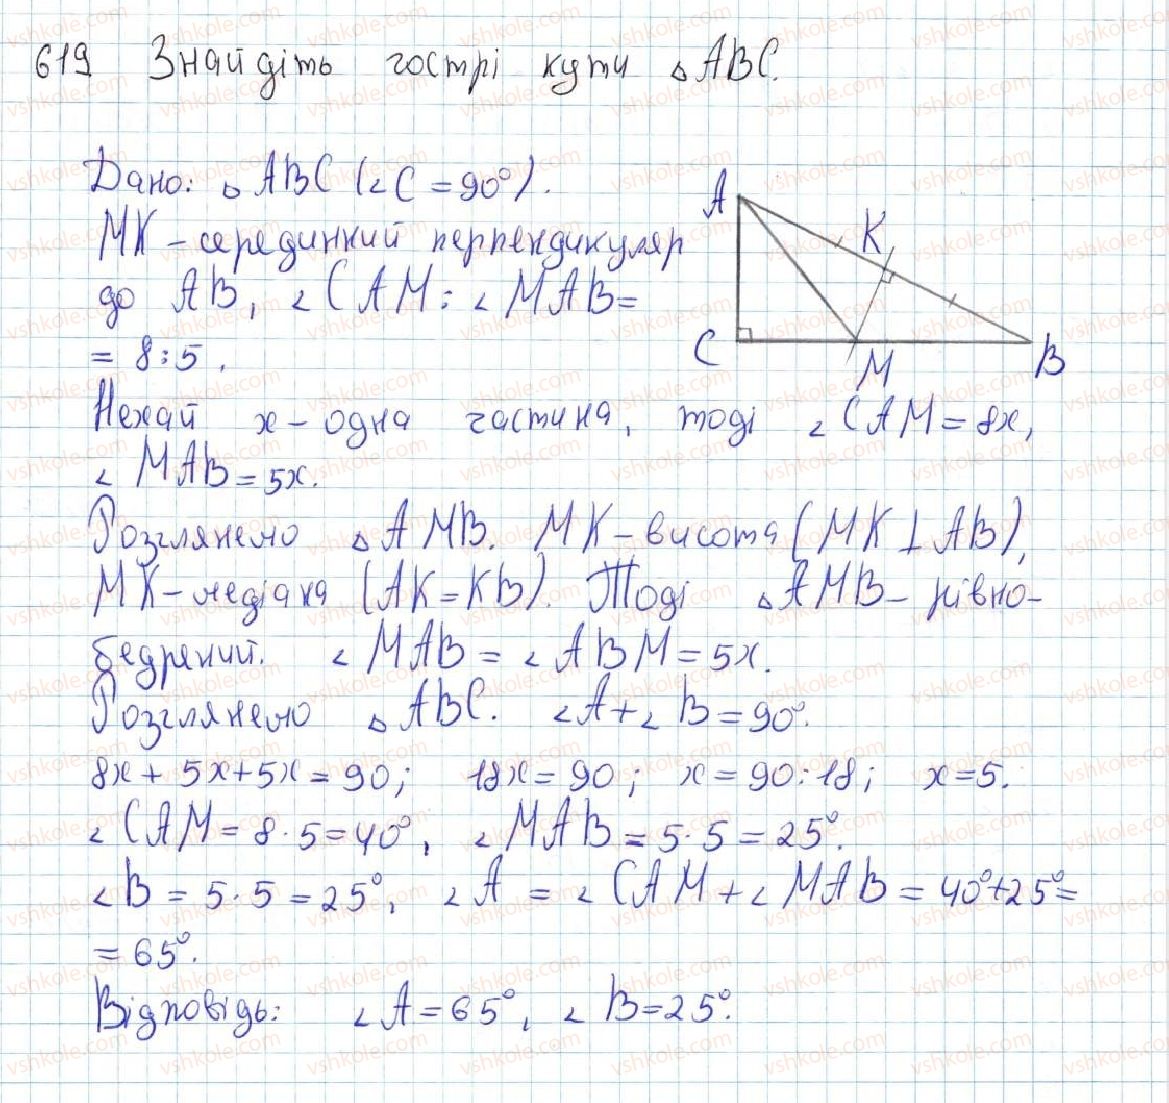 619 Знайдіть гострі кути △ABC.
Дано: △ABC (∠C = 90°).
MK – серединний перпендикуляр
до AB, ∠CAM : ∠MAB =
= 8:5.
A
K
C
M
B
Нехай x – одна частина, тоді ∠CAM = 8x,
∠MAB = 5x.
Розглянемо △AMB. MK – висота (MK ⊥ AB),
MK – медіана (AK = KB). Тоді △AMB – рівно-
бедрений. ∠MAB = ∠ABM = 5x.
Розглянемо △ABC. ∠A + ∠B = 90°.
8x + 5x + 5x = 90; 18x = 90; x = 90:18; x = 5.
∠CAM = 8·5 = 40°, ∠MAB = 5·5 = 25°.
∠B = 5·5 = 25°, ∠A = ∠CAM + ∠MAB = 40° + 25° =
= 65°.
Відповідь: ∠A = 65°, ∠B = 25°.
vshkole.com